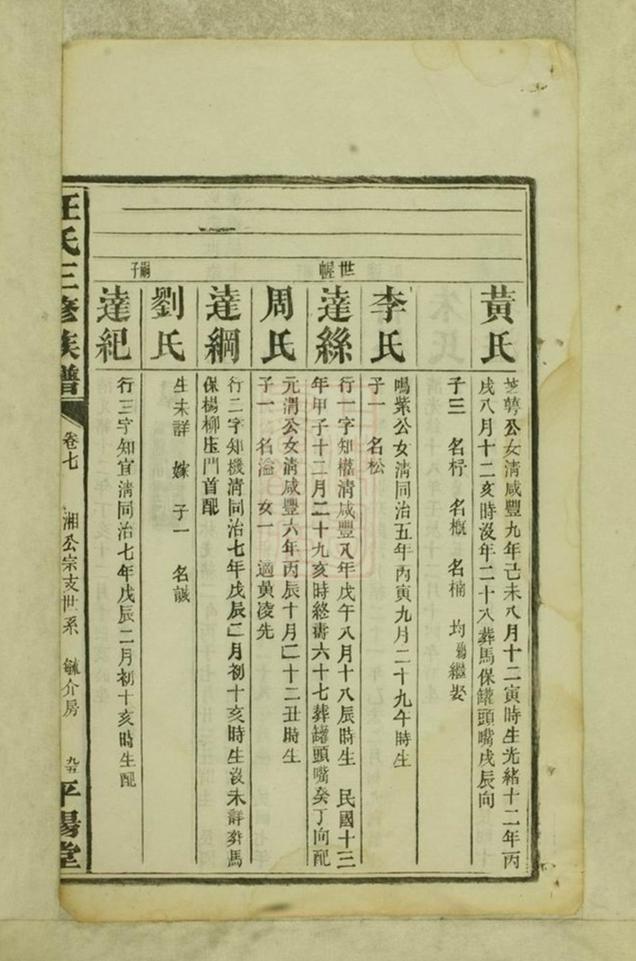 世幄
嗣子
黃氏
芝蕚公女清咸豐九年己未八月十二寅時生光緒十二年丙
戌八月十二亥時沒年二十八葬馬保罐頭嘴戌辰向
子三 名杍 名概 名楠 均殤繼娶
李氏
鳴紫公女清同治五年丙寅九月二十九午時生
子一 名松
達絲
行一字知構清咸豐八年戊午八月十八辰時生 民國十三
年甲子十二月二十九亥時終壽六十七葬罐頭嘴癸丁向配
周氏
元渭公女清咸豐六年丙辰十月二十二丑時生
子一 名溢 女一 適黃凌先
達綱
行二字知機清同治七年戊辰二月初十亥時生沒未詳葬馬
保楊柳庄門首配
劉氏
生未詳 嫁 子一 名誠
達紀
行三字知宜清同治七年戊辰二月初十亥時生配
汪氏三修族譜
卷七
湘公宗支世系
毓介房
九五
平陽堂